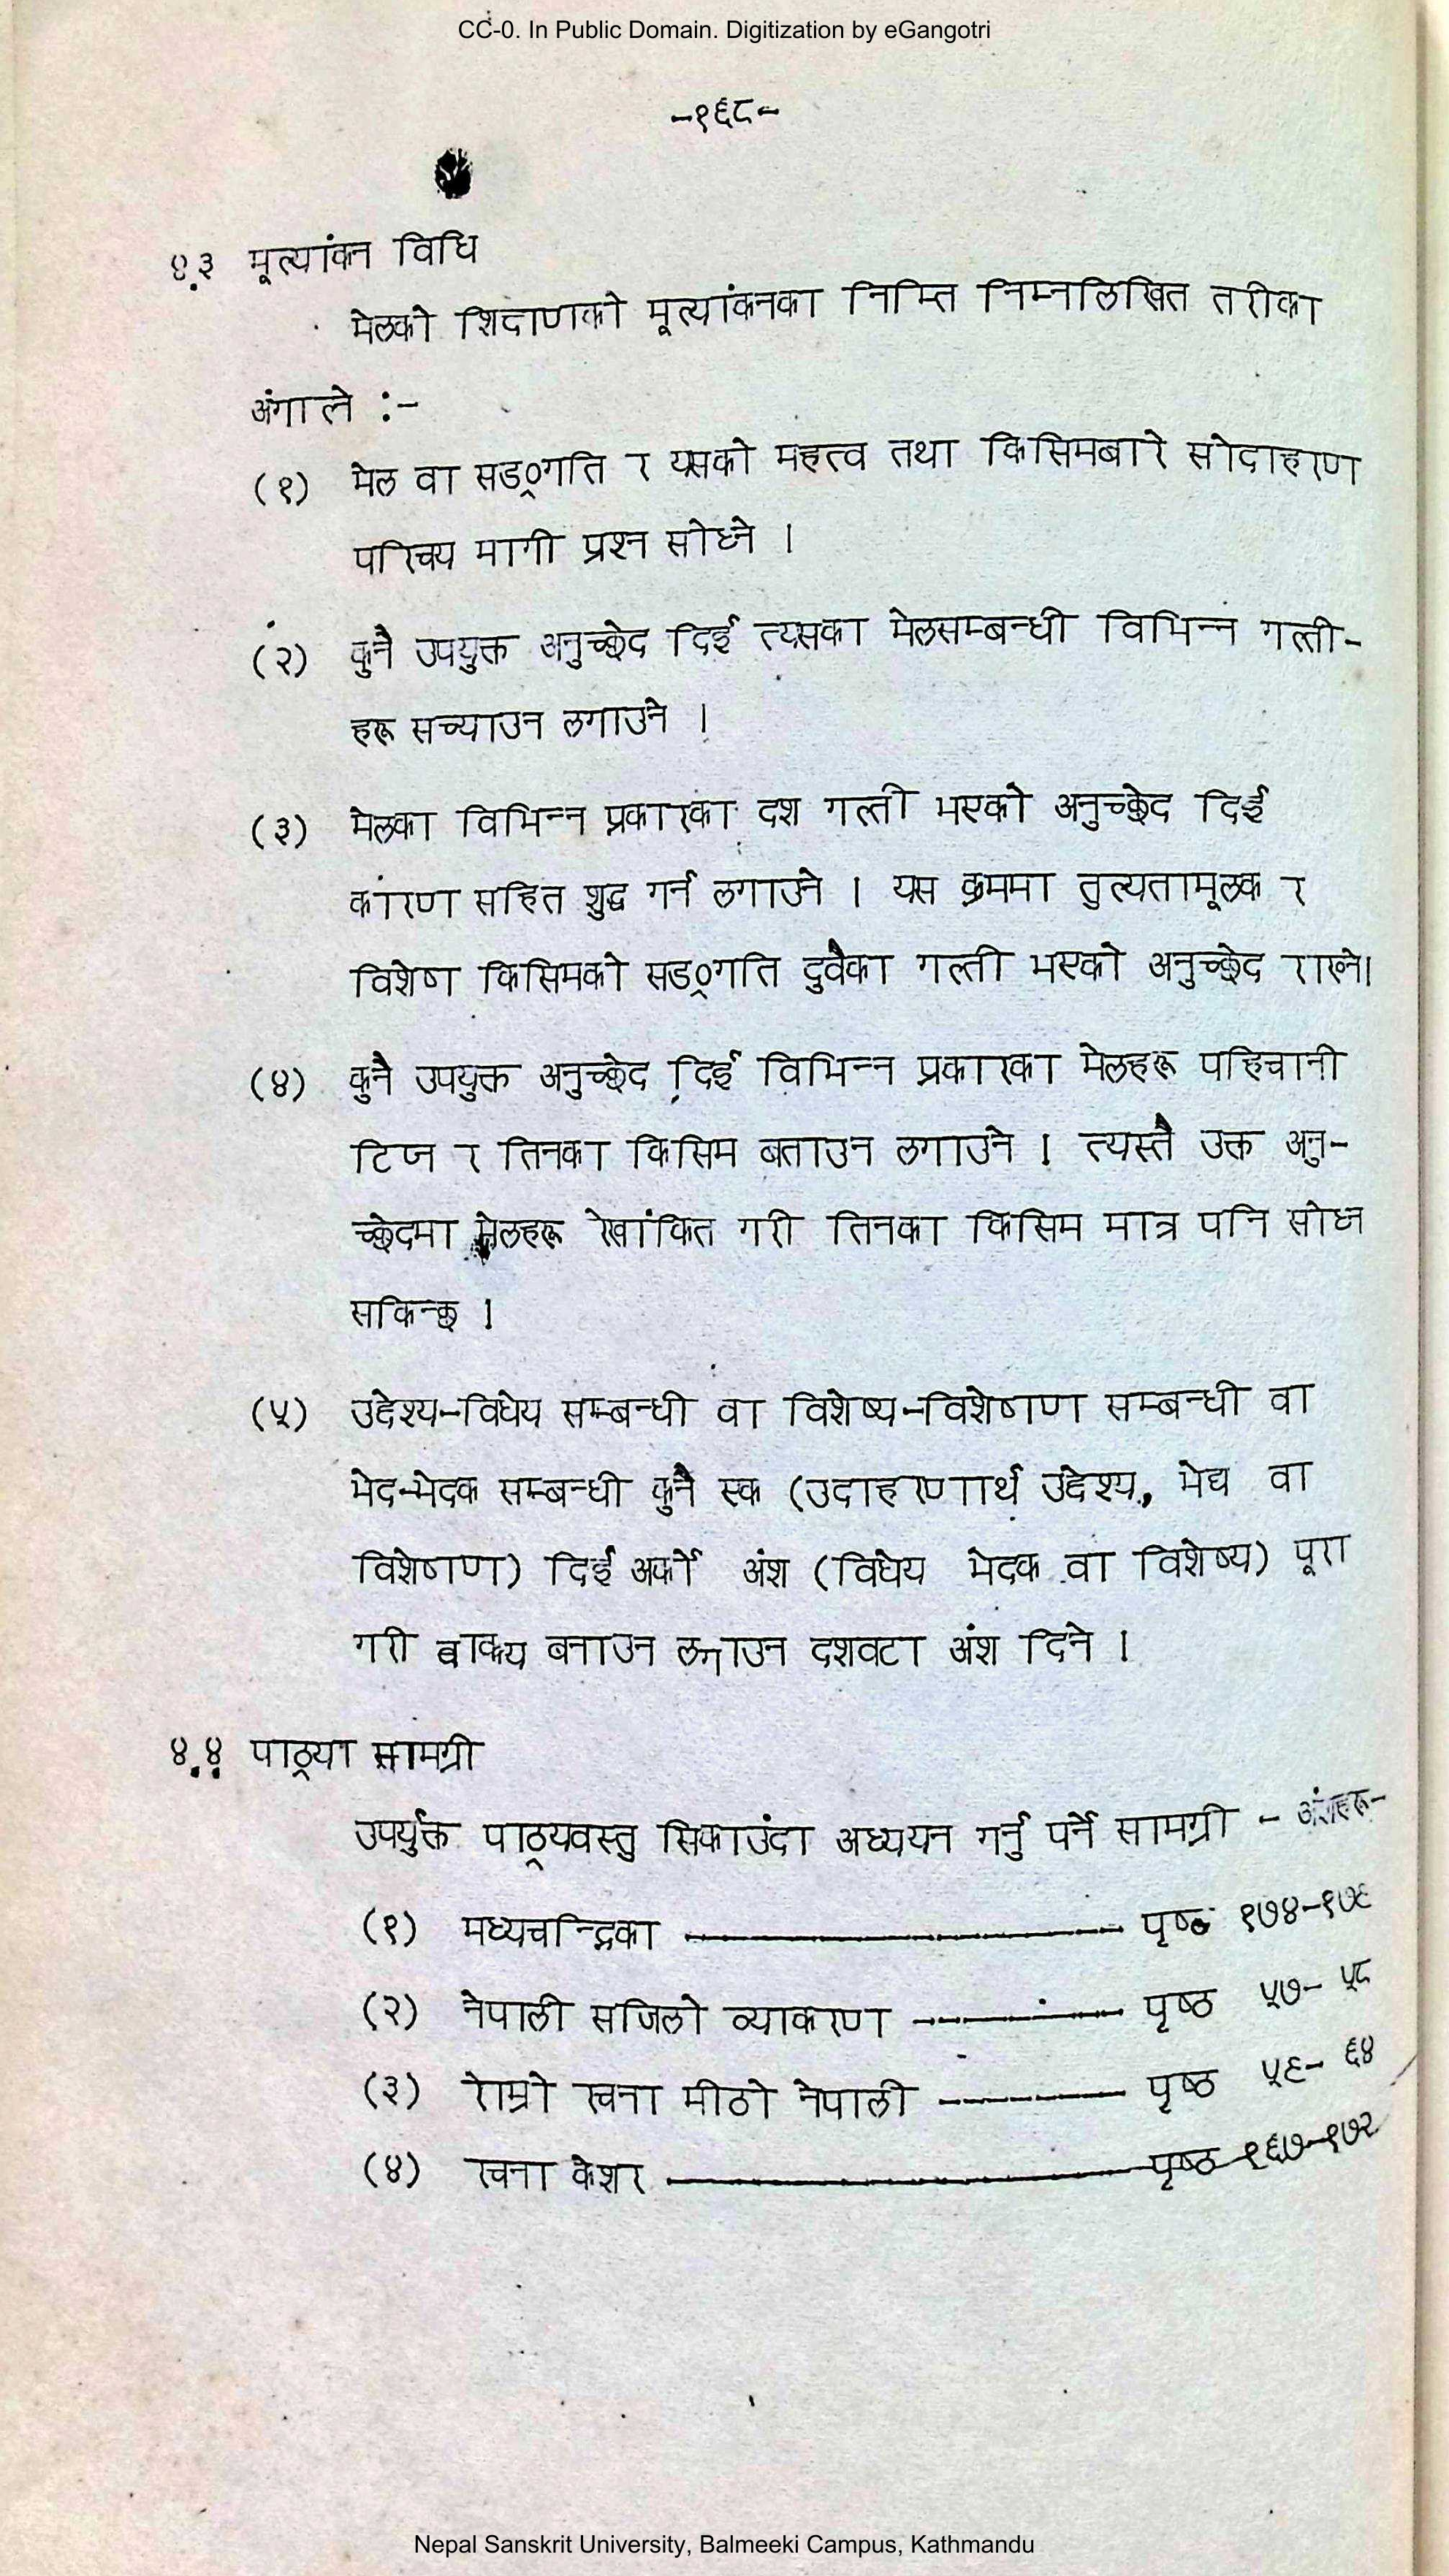 CC-0. In Public Domain. Digitization by eGangotri
-१६८-
४.३ मूल्यांकन विधि
मेलको शिक्षाणको मूल्यांकनका निम्ति निम्नलिखित तरीका
अंगाले :-
(१) मेल वा सङ्गति र यसको महत्व तथा किसिमबारे सोदाहरण
परिचय मागी प्रश्न सोध्ने ।
(२) कुनै उपयुक्त अनुच्छेद दिई त्यसका मेलसम्बन्धी विभिन्न गल्ती-
हरू सच्याउन लगाउने ।
(३) मेलका विभिन्न प्रकारका दश गल्ती भएको अनुच्छेद दिई
कारण सहित शुद्ध गर्न लगाउने । यस क्रममा तुल्यतामूलक र
विशेष किसिमको सङ्गति दुवैका गल्ती भएको अनुच्छेद राख्ने।
(४) कुनै उपयुक्त अनुच्छेद दिई विभिन्न प्रकारका मेलहरू पहिचानी
टिप्न र तिनका किसिम बताउन लगाउने । त्यस्तै उक्त अनु-
च्छेदमा मेलहरू रेखांकित गरी तिनका किसिम मात्र पनि सोध्न
सकिन्छ ।
(५) उद्देश्य-विधेय सम्बन्धी वा विशेष्य-विशेषाण सम्बन्धी वा
भेद-भेदक सम्बन्धी कुनै एक (उदाहरणार्थ उद्देश्य, भेद्य वा
विशेषाण) दिई अर्को अंश (विधेय भेदक वा विशेष्य) पूरा
गरी वाक्य बनाउन लगाउन दशवटा अंश दिने ।
४.४ पाठ्या सामग्री
उपर्युक्त पाठ्यवस्तु सिकाउंदा अध्ययन गर्नु पर्ने सामग्री - अंशहरू-
(१) मध्यचन्द्रिका ——— पृष्ठ १७४-१७६
(२) नेपाली सजिलो व्याकरण ——— पृष्ठ ५७- ५८
(३) राम्रो रचना मीठो नेपाली ——— पृष्ठ ५९- ६४
(४) रचना केशर ——— पृष्ठ १६७-१७२
Nepal Sanskrit University, Balmeeki Campus, Kathmandu